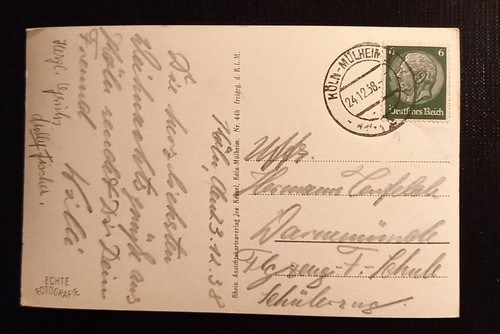 Köln, den 23.12.38
Die herzlichsten
Weihnachtsgrüße aus
Köln sendet Dir Dein
Freund Willi
Herzl. Grüße
Fischer.
ECHTE
FOTOGRAFIE
Rhein. Ansichtskartenverlag Jos. Kessel, Köln-Mülheim. Nr. 446 freigeg. d. R.L.M.
KÖLN-MÜLHEIM
24.12.38
6 6
Deutsches Reich
Uffz.
Hermann
Warnemünde
Flgzeug-F.-Schule
Schülerzug.